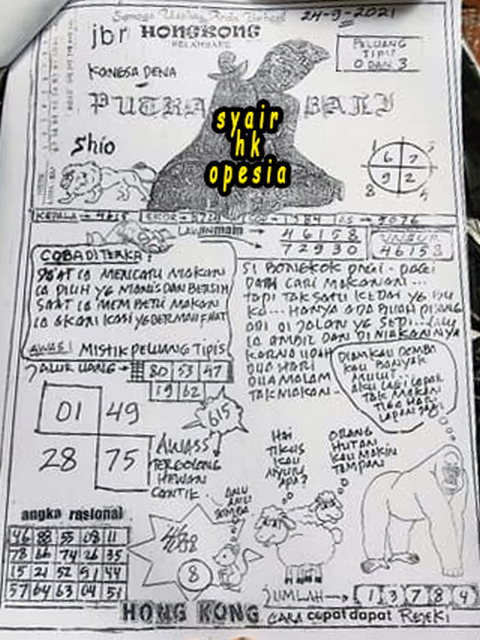 Semoga Usaha Anda Berhasil
24-9-2021
jbr HONGKONG
PELUANG
TIPIS
0 DAN 3
KONGSA DENA
PUTRA BALI
syair
hk
opesia
Shio
6 7
9 2
8
KEPALA → 4615
1584 105 → 9076
LAWAN main → 4 6 1 5 8
7 2 9 3 0
46158
COBA DI TERKA:
SAAT IA MENCARI MAKAN
IA PILIH YG MANIS DAN BERSIH
SAAT IA MEMBERI MAKAN
IA AKAN KASI YG BERMANFAAT
AWAS! MISTIK PELUANG TIPIS
SI BONGKOK PAGI - PAGI
DARI CARI MAKANAN...
TAPI TAK SATU KEDAI YG
KA... HANYA ADA BUAH PISANG
DI JALAN YG SEPI...
IA AMBIL DAN DI MAKANNYA
KARNA UDAH
DUA HARI
DUA MALAM
TAK MAKAN.
DIAMKAU DOMBA
KAU BANYAK
MULUT..
AKU LAGI LAPAR
TAK MAKAN
TIGA HARI
JALUR UANG → 80 53 47
19 62
01 49
28 75
615
AWASS
TERGOLONG
HEWAN
CANTIK.
HAI
TIKUS
KAU
APA?
ORANG
HUTAN
KAU MAKIN
TAMPAN
angka rasional
46 88 55 08 11
78 66 74 26 35
15 21 52 91 44
57 64 63 04 51
8
JUMLAH → 1 3 7 8 4
HONG KONG CARA cepat dapat REJEKI